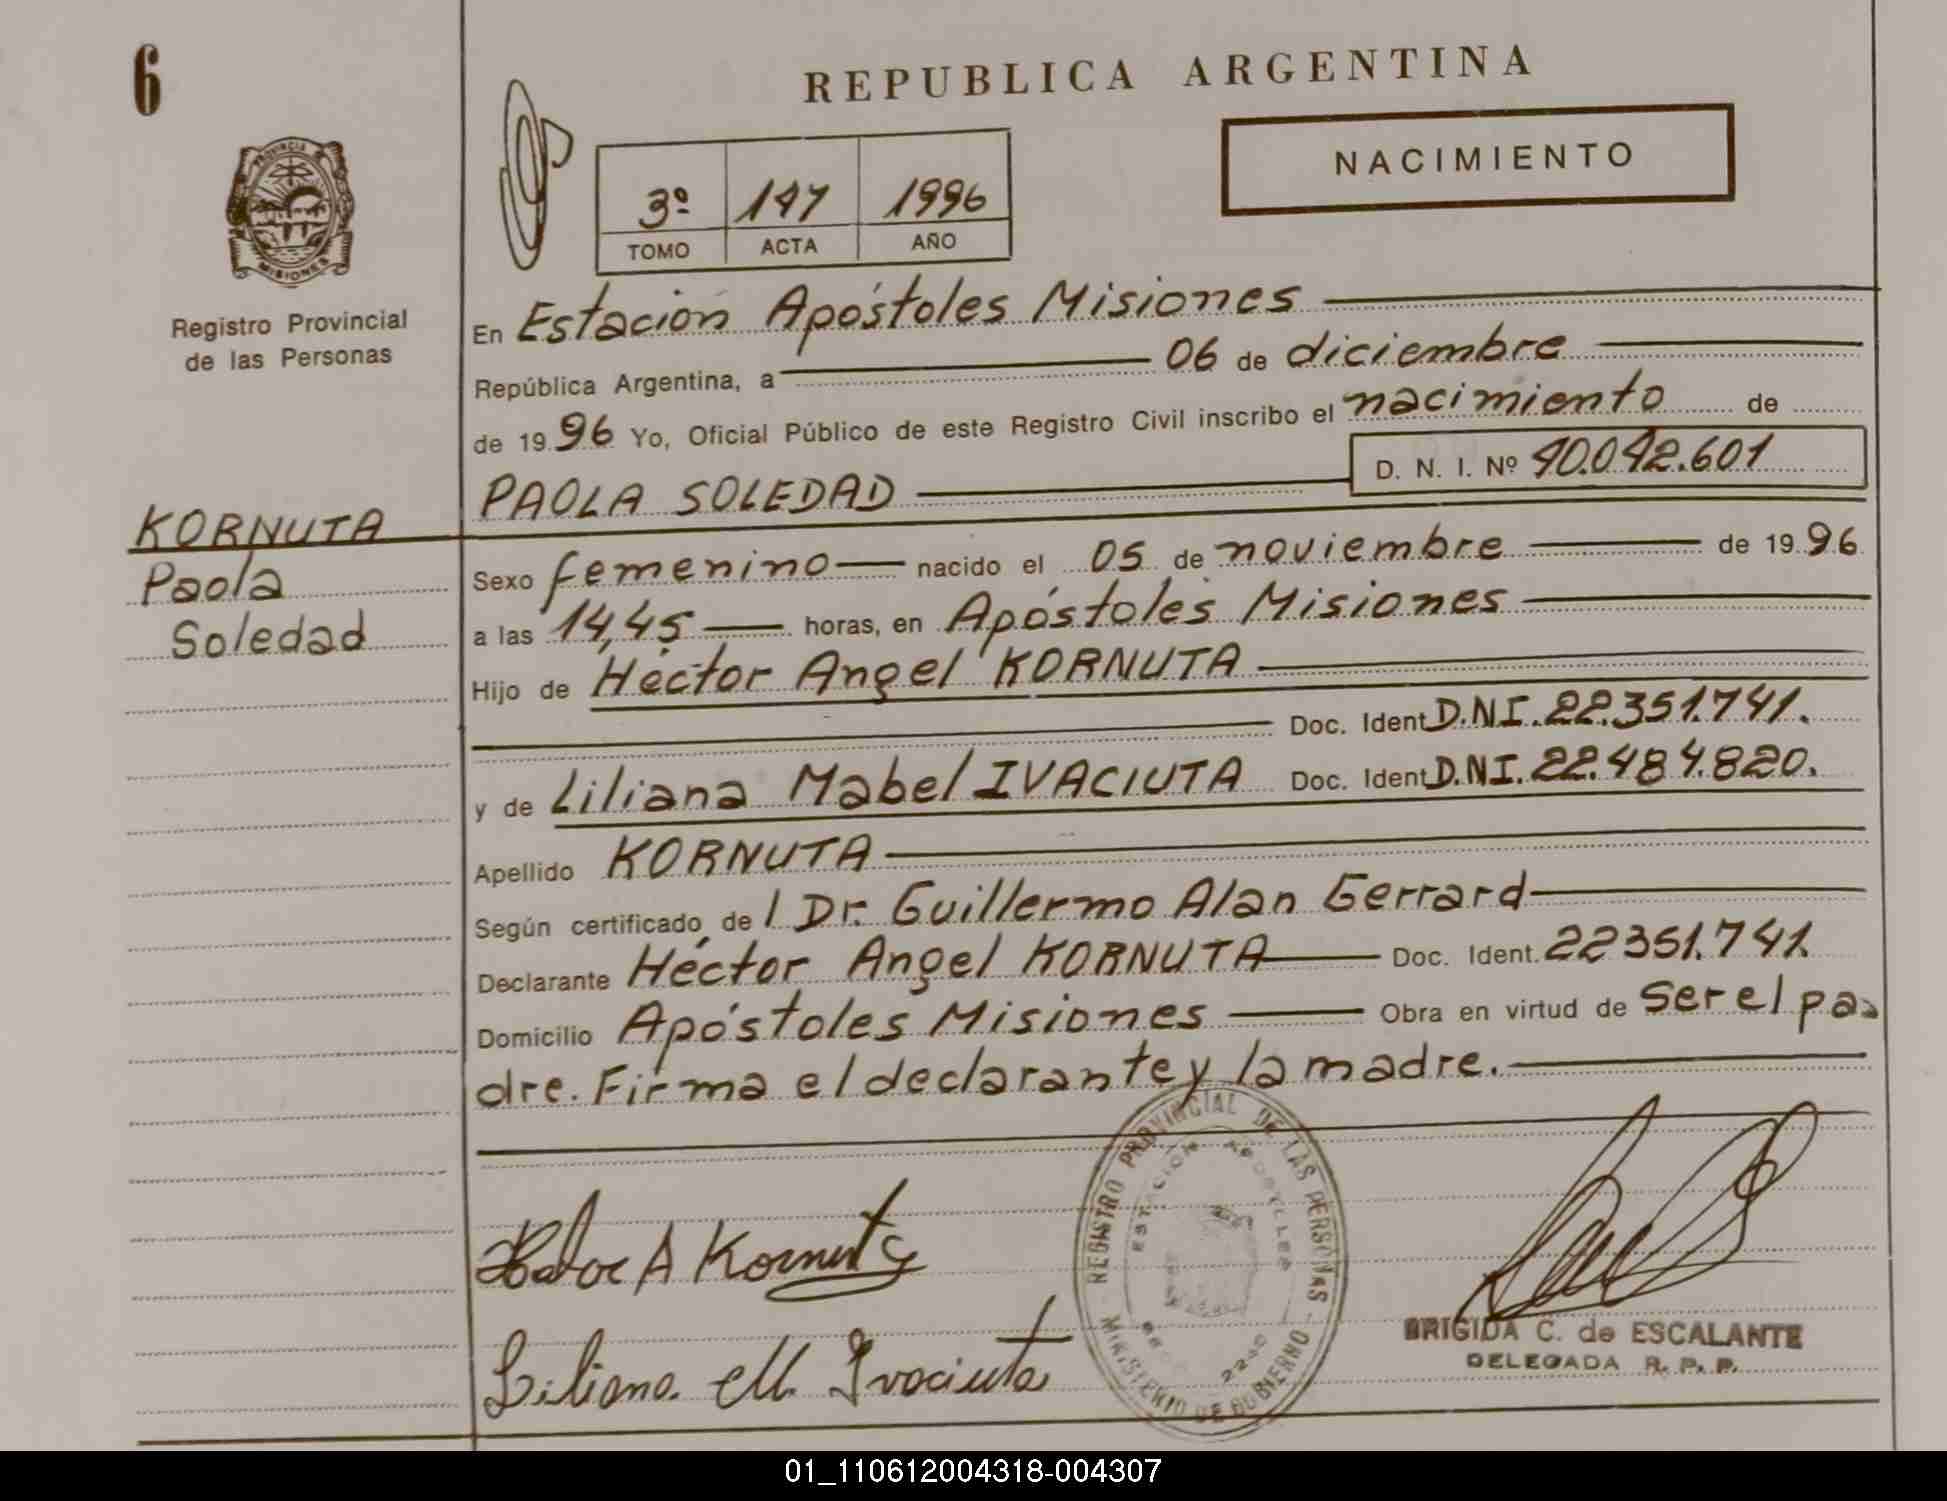 6
REPUBLICA ARGENTINA
NACIMIENTO
PROVINCIA
MISIONES
3º 147 1996
TOMO ACTA AÑO
Registro Provincial
de las Personas
En Estación Apóstoles Misiones
República Argentina, a 06 de diciembre
de 1996 Yo, Oficial Público de este Registro Civil inscribo el nacimiento de
PAOLA SOLEDAD D. N. I. Nº 40.042.601
KORNUTA
Paola
Soledad
Sexo femenino nacido el 05 de noviembre de 1996
a las 14,45 horas, en Apóstoles Misiones
Hijo de Héctor Angel KORNUTA
Doc. Ident D.N.I. 22.351.741.
y de Liliana Mabel IVACIUTA Doc. Ident D.N.I. 22.484.820.
Apellido KORNUTA
Según certificado de l Dr. Guillermo Alan Gerrard
Declarante Héctor Angel KORNUTA Doc. Ident. 22351.741.
Domicilio Apóstoles Misiones Obra en virtud de ser el pa
dre. Firma el declarante y la madre.
REGISTRO PROVINCIAL DE LAS PERSONAS
ESTACIÓN APOSTOLES
MINISTERIO DE GOBIERNO
Hector A Kornuta
Liliana M. Ivaciuta
BRIGIDA C. de ESCALANTE
DELEGADA R. P. P.
01_110612004318-004307